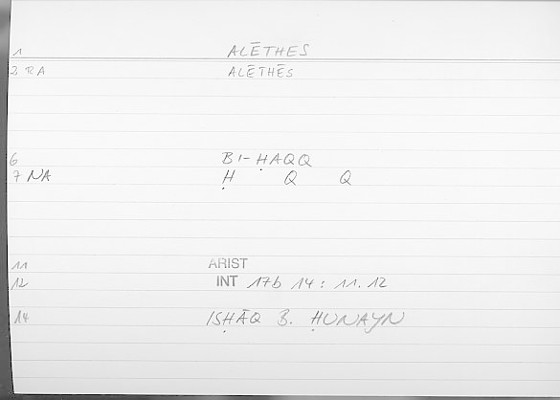 1 ALĒTHES
2 RA ALĒTHĒS
6 BI-ḤAQQ
7 NA Ḥ Q Q
11 ARIST
12 INT 17b 14 : 11.12
14 ISḤĀQ B. ḤUNAYN